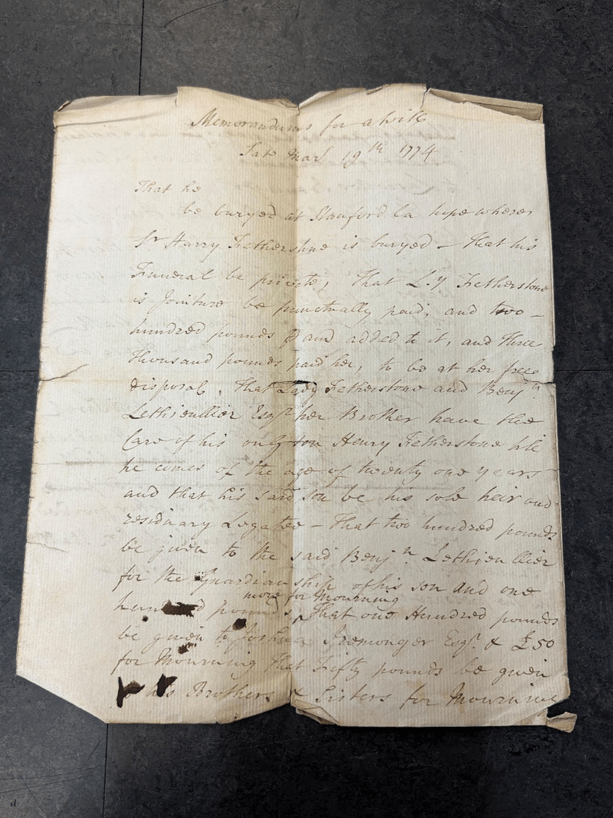 Memorandums for a will
Sat Mar 19th 1774
That he
be buryed at Stanford Le hope wherer
Sr Harry Fetherstone is buryed - that his
Funeral be private, That L:y Fetherstone
is Jointure be punctually paid, and two
hundred pounds P ann added to it, and Three
Thousand pounds paid her, to be at her free
disposal, That Lady Fetherstone and Benjn
Lethieullier Esqr her Brother have the
Care of his only son Henry Fetherstone till
he comes of the age of twenty one years
and that his said son be his sole heir and
residuary Legatee - That two hundred pounds
be given to the said Benjn Lethieullier
for the Guardianship of his son and one
more for Mourning
hundred pounds, That one Hundred pounds
be given to Iremonger Esqr & £50
for Mourning That Fifty pounds be given
his Brothers & Sisters for Mourning